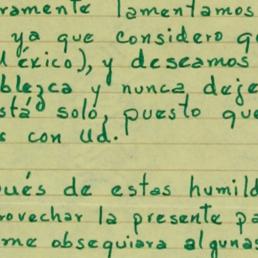 ramente lamentamos
ya que considero q
México), y deseamos
blezca y nunca deje
stá solo, puesto que
s con Ud.
ués de estas humild
rovechar la presente pa
me obsequiara algunas